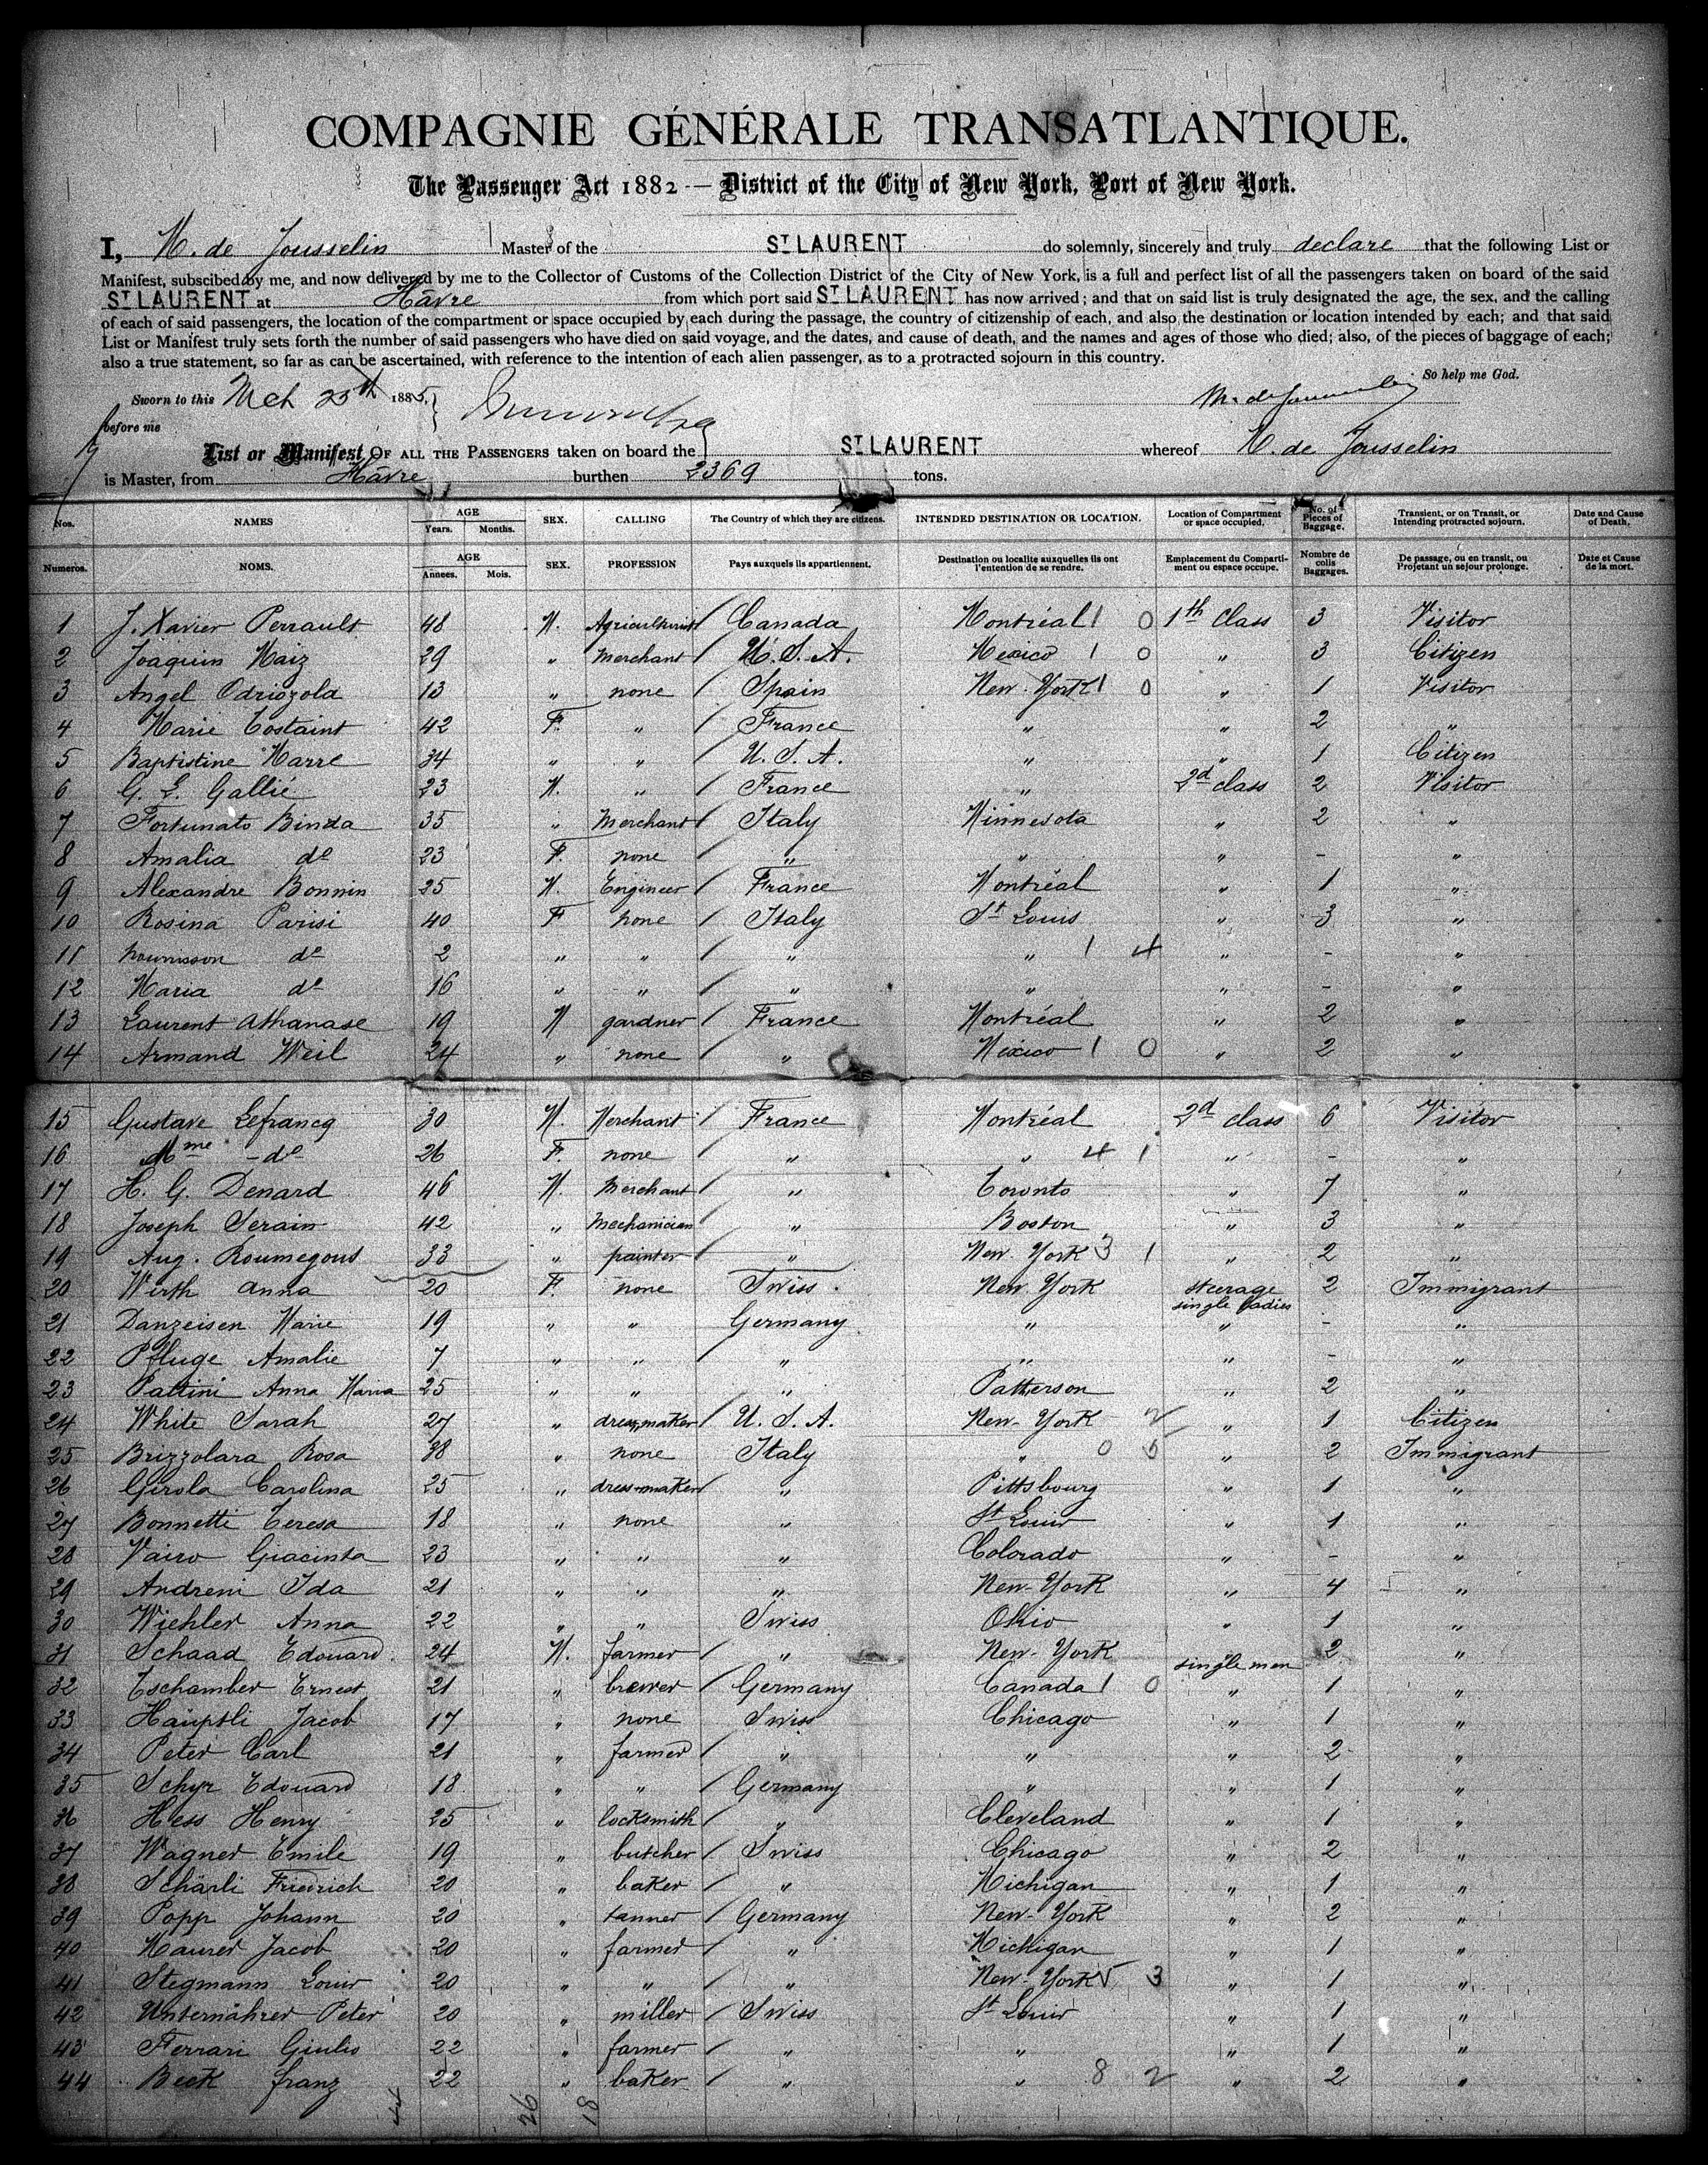 COMPAGNIE GÉNÉRALE TRANSATLANTIQUE.
The Passenger Act 1882 — District of the City of New York, Port of New York.
I, M. de Jousselin Master of the ST LAURENT do solemnly, sincerely and truly declare that the following List or
Manifest, subscibed by me, and now delivered by me to the Collector of Customs of the Collection District of the City of New York, is a full and perfect list of all the passengers taken on board of the said
ST LAURENT at Hâvre from which port said ST LAURENT has now arrived; and that on said list is truly designated the age, the sex, and the calling
of each of said passengers, the location of the compartment or space occupied by each during the passage, the country of citizenship of each, and also the destination or location intended by each; and that said
List or Manifest truly sets forth the number of said passengers who have died on said voyage, and the dates, and cause of death, and the names and ages of those who died; also, of the pieces of baggage of each;
also a true statement, so far as can be ascertained, with reference to the intention of each alien passenger, as to a protracted sojourn in this country.
So help me God.
Sworn to this Mch 25th 1885,
before me
List or Manifest OF ALL THE PASSENGERS taken on board the ST LAURENT whereof M. de Jousselin
is Master, from Hâvre burthen 2369 tons.
Nos. NAMES AGE Years. Months. SEX. CALLING The Country of which they are citizens. INTENDED DESTINATION OR LOCATION. Location of Compartment or space occupied. No. of Pieces of Baggage. Transient, or on Transit, or Intending protracted sojourn. Date and Cause of Death.
Numeros. NOMS. AGE Annees. Mois. SEX. PROFESSION Pays auxquels ils appartiennent. Destination ou localite auxquelles ils ont l'entention de se rendre. Emplacement du Compartiment ou espace occupe. Nombre de colis Baggages. De passage, ou en transit, ou Projetant un sejour prolonge. Date et Cause de la mort.
1 J. Xavier Perrault 48 M. Agriculturist / Canada Montréal 1 0 1th Class 3 Visitor
2 Joaquin Maiz 29 " Merchant / U.S.A. Mexico 1 0 " 3 Citizen
3 Angel Odriozola 13 " none / Spain New-York 1 0 " 1 Visitor
4 Marie Costaint 42 F. " / France " " 2 "
5 Baptistine Marre 34 " " / U.S.A. " " 1 Citizen
6 G. E. Gallié 23 M. " / France " 2d class 2 Visitor
7 Fortunato Binda 35 " Merchant / Italy Minnesota " 2 "
8 Amalia do 23 F. none / " " " - "
9 Alexandre Bonnin 25 M. Engineer / France Montréal " 1 "
10 Rosina Parisi 40 F none / Italy St Louis " 3 "
11 nourisson do 2 " " / " " 1 4 " - "
12 Maria do 16 " " / " " " - "
13 Laurent Athanase 19 M gardner / France Montréal " 2 "
14 Armand Weil 24 " none / " Mexico 1 0 " 2 "
15 Gustave Lefrancq 30 M. Merchant / France Montréal 2d class 6 Visitor
16 Mme do 26 F. none / " " 4 1 " - "
17 H. G. Denard 46 M. Merchant / " Toronto " 7 "
18 Joseph Serain 42 " Mechanician / " Boston " 3 "
19 Aug. Roumegous 33 " painter / " New York 3 1 " 2 "
20 Wirth Anna 20 F. none / Swiss New York steerage single ladies 2 Immigrant
21 Danzeisen Marie 19 " " / Germany " " - "
22 Pfluge Amalie 7 " " / " " " - "
23 Pattini Anna Maria 25 " " " Patterson " 2 "
24 White Sarah 27 " dressmaker / U.S.A. New-York 2 " 1 Citizen
25 Brizzolara Rosa 38 " none Italy " 0 5 " 2 Immigrant
26 Girola Carolina 25 " dress-maker " Pittsbourg " 1 "
27 Bonnetti Teresa 18 " none " St Louis " 1 "
28 Vairo Giacinta 23 " " " Colorado " - "
29 Andreni Ida 21 " " " New-York " 4 "
30 Wiehler Anna 22 " " Swiss Ohio " 1 "
31 Schaad Edouard 24 M. farmer / " New-York single men 2 "
32 Tschamber Ernest 21 " brewer / Germany Canada 1 0 " 1 "
33 Haüptli Jacob 17 " none / Swiss Chicago " 1 "
34 Peter Carl 21 " farmer / " " " 2 "
35 Schyr Edouard 18 " " / Germany " " 1 "
36 Hess Henry 25 " locksmith / " Cleveland " 1 "
37 Wagner Emile 19 " butcher / Swiss Chicago " 2 "
38 Schärli Friedrich 20 " baker / " Michigan " 1 "
39 Popp Johann 20 " tanner / Germany New-York " 2 "
40 Maurer Jacob 20 " farmer / " Michigan " 1 "
41 Stegmann Louis 20 " " / " New-York 5 3 " 1 "
42 Unternährer Peter 20 " miller / Swiss St Louis " 1 "
43 Ferrari Giulio 22 " farmer / " " " 1 "
44 Beck franz 22 " baker / " " 8 2 " 2 "
44 26 18